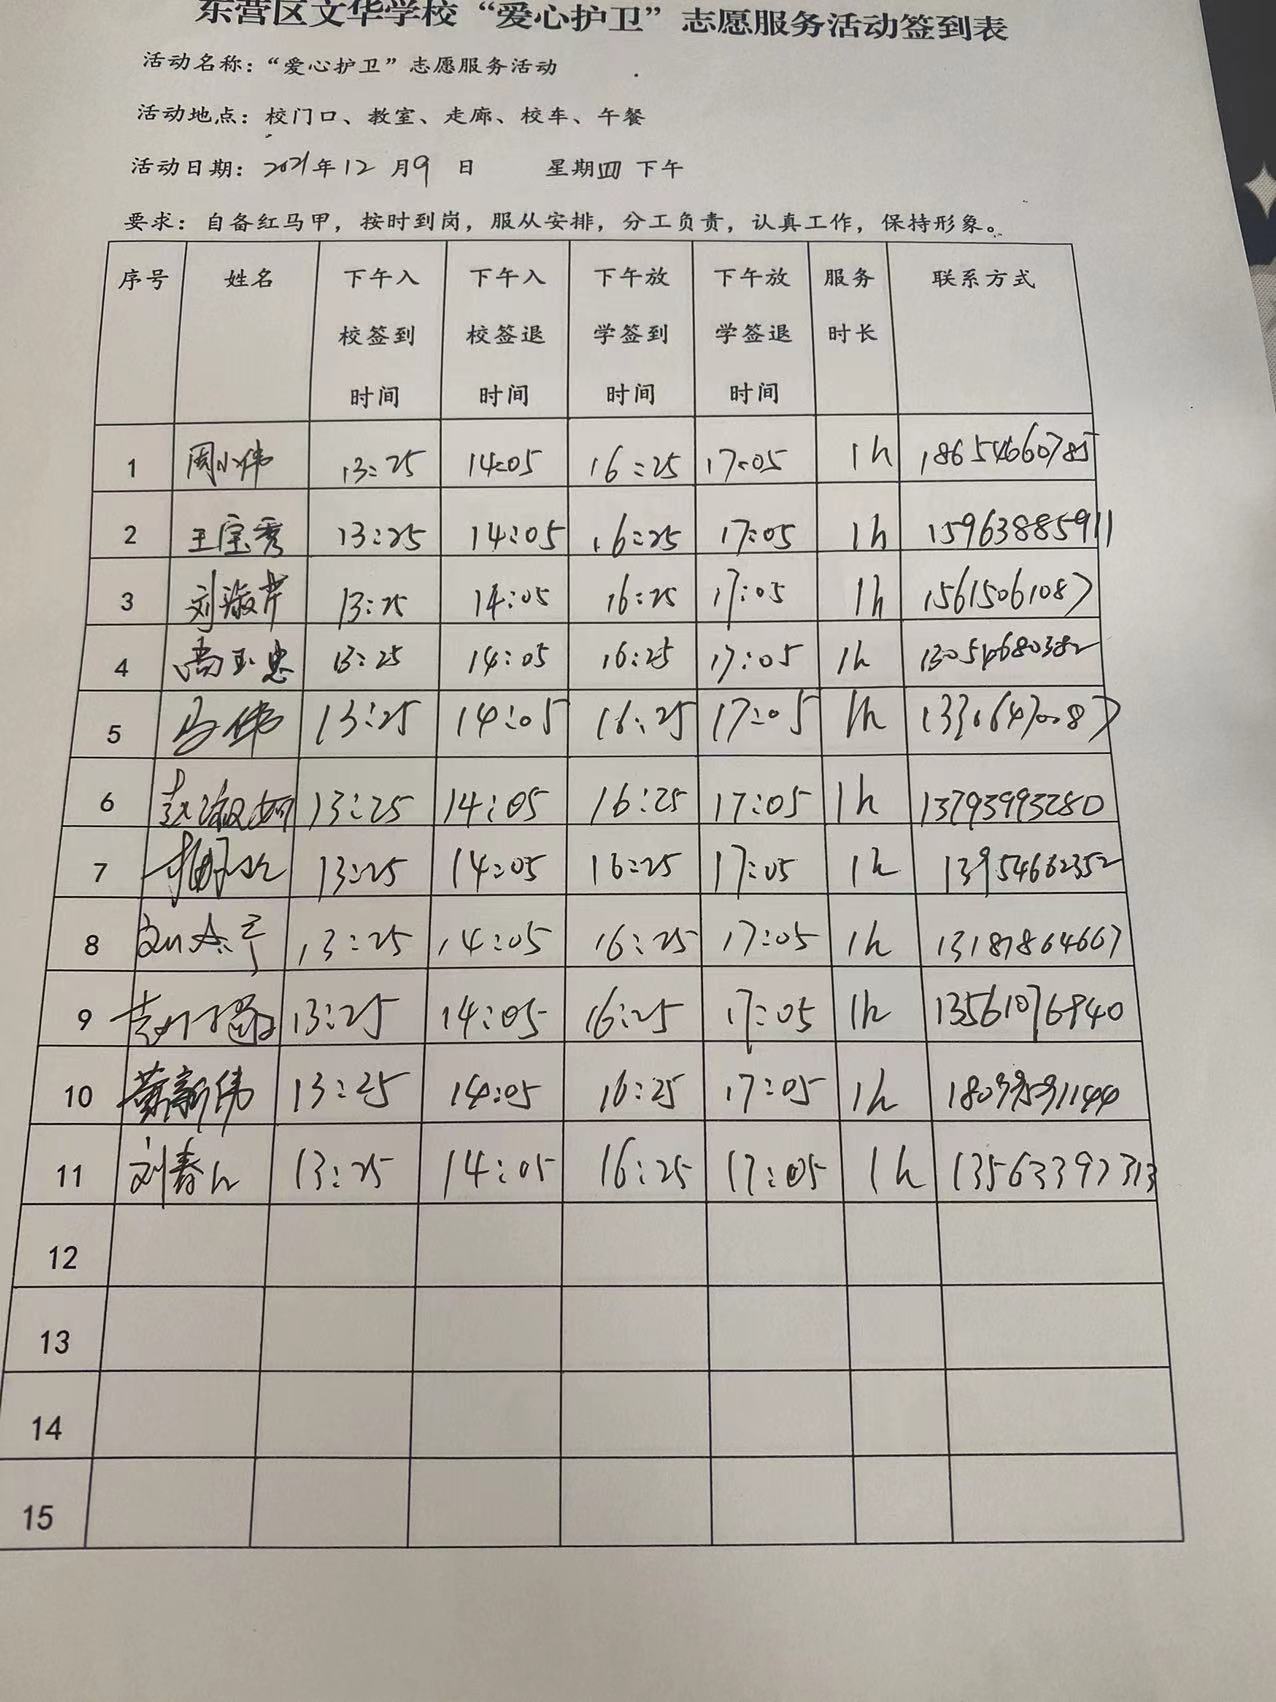 东营区文华学校“爱心护卫”志愿服务活动签到表
活动名称：“爱心护卫”志愿服务活动
活动地点：校门口、教室、走廊、校车、午餐
活动日期：2021年12月9日 星期四 下午
要求：自备红马甲，按时到岗，服从安排，分工负责，认真工作，保持形象。
序号 姓名 下午入校签到时间 下午入校签退时间 下午放学签到时间 下午放学签退时间 服务时长 联系方式
1 周小伟 13:25 14:05 16:25 17:05 1h 18654660785
2 王宝秀 13:25 14:05 16:25 17:05 1h 15963885911
3 刘淑芹 13:25 14:05 16:25 17:05 1h 15615061087
4 13:25 14:05 16:25 17:05 1h 13054680382
5 马伟 13:25 14:05 16:25 17:05 1h
6 13:25 14:05 16:25 17:05 1h 13793993280
7 13:25 14:05 16:25 17:05 1h 13954662352
8 13:25 14:05 16:25 17:05 1h 13187864667
9 13:25 14:05 16:25 17:05 1h 13561076940
10 13:25 14:05 16:25 17:05 1h
11 13:25 14:05 16:25 17:05 1h 13563397313
12
13
14
15